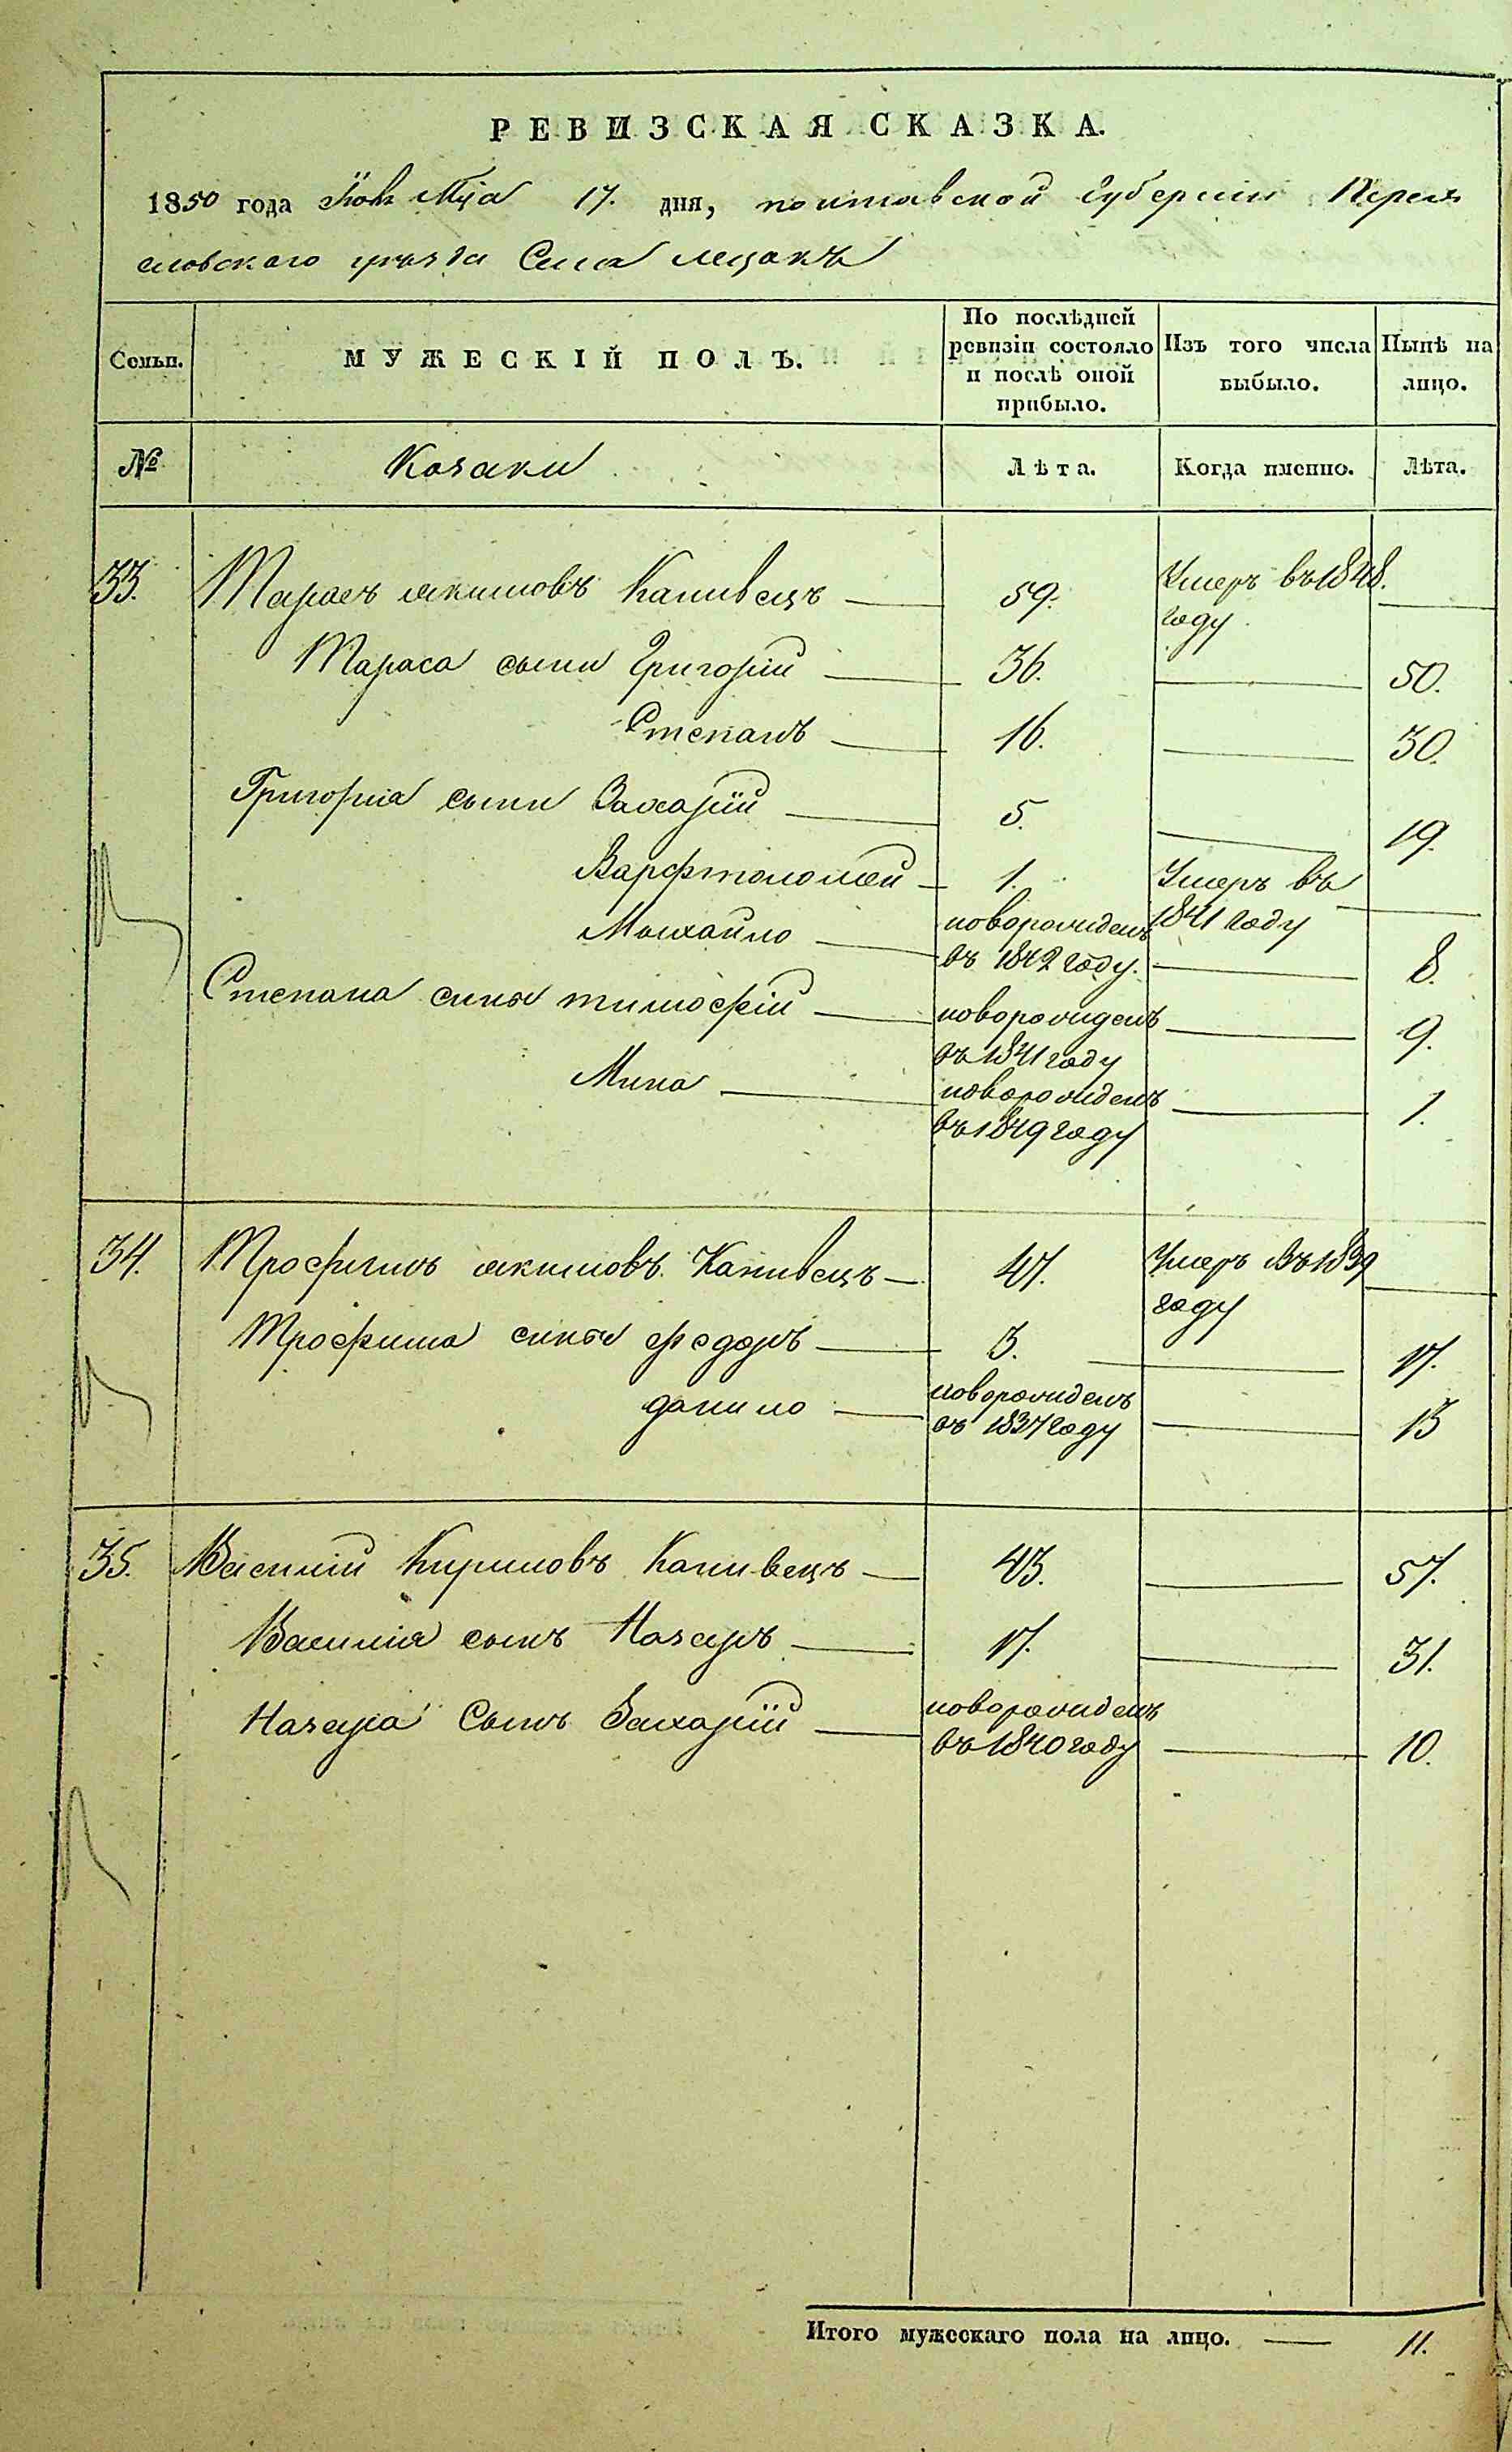 РЕВИЗСКАЯ СКАЗКА.
1850 года Іюн Мца 17. дня, полтавской Губерніи Перея
словскаго уезда Села лецокъ
Семьи.
МУЖЕСКІЙ ПОЛЪ.
По послѣдней
ревизіи состояло
и послѣ оной
прибыло.
Изъ того числа
выбыло.
Нынѣ на
лицо.
№
Козаки
Лѣта.
Когда именно.
Лѣта.
33. Тарасъ якимовъ Канивецъ — 59. Умеръ въ 1848.
году —
Тараса сыни Григорій — 36. — 50.
Степанъ — 16. — 30.
Григорія сыни Захарій — 5. — 19.
Варфтоломей — 1. Умеръ въ
1841 году —
Михайло — новорожденъ
въ 1842 году. — 8.
Степана синя тимофій — новорожденъ — 9.
въ 1841 году
Мина — новорожденъ — 1.
въ 1849 году
34. Трофимъ якимовъ Канивецъ — 47. Умеръ въ 1839
году —
Трофима синя федоръ — 3. — 17.
данило — новорожденъ
въ 1837 году — 13
35. Василій Кириловъ Канивецъ — 43. — 57.
Василія сынъ Назаръ — 17. — 31.
Назара Сынъ Захарій — новорожденъ
въ 1840 году — 10.
Итого мужескаго пола на лицо. — 11.